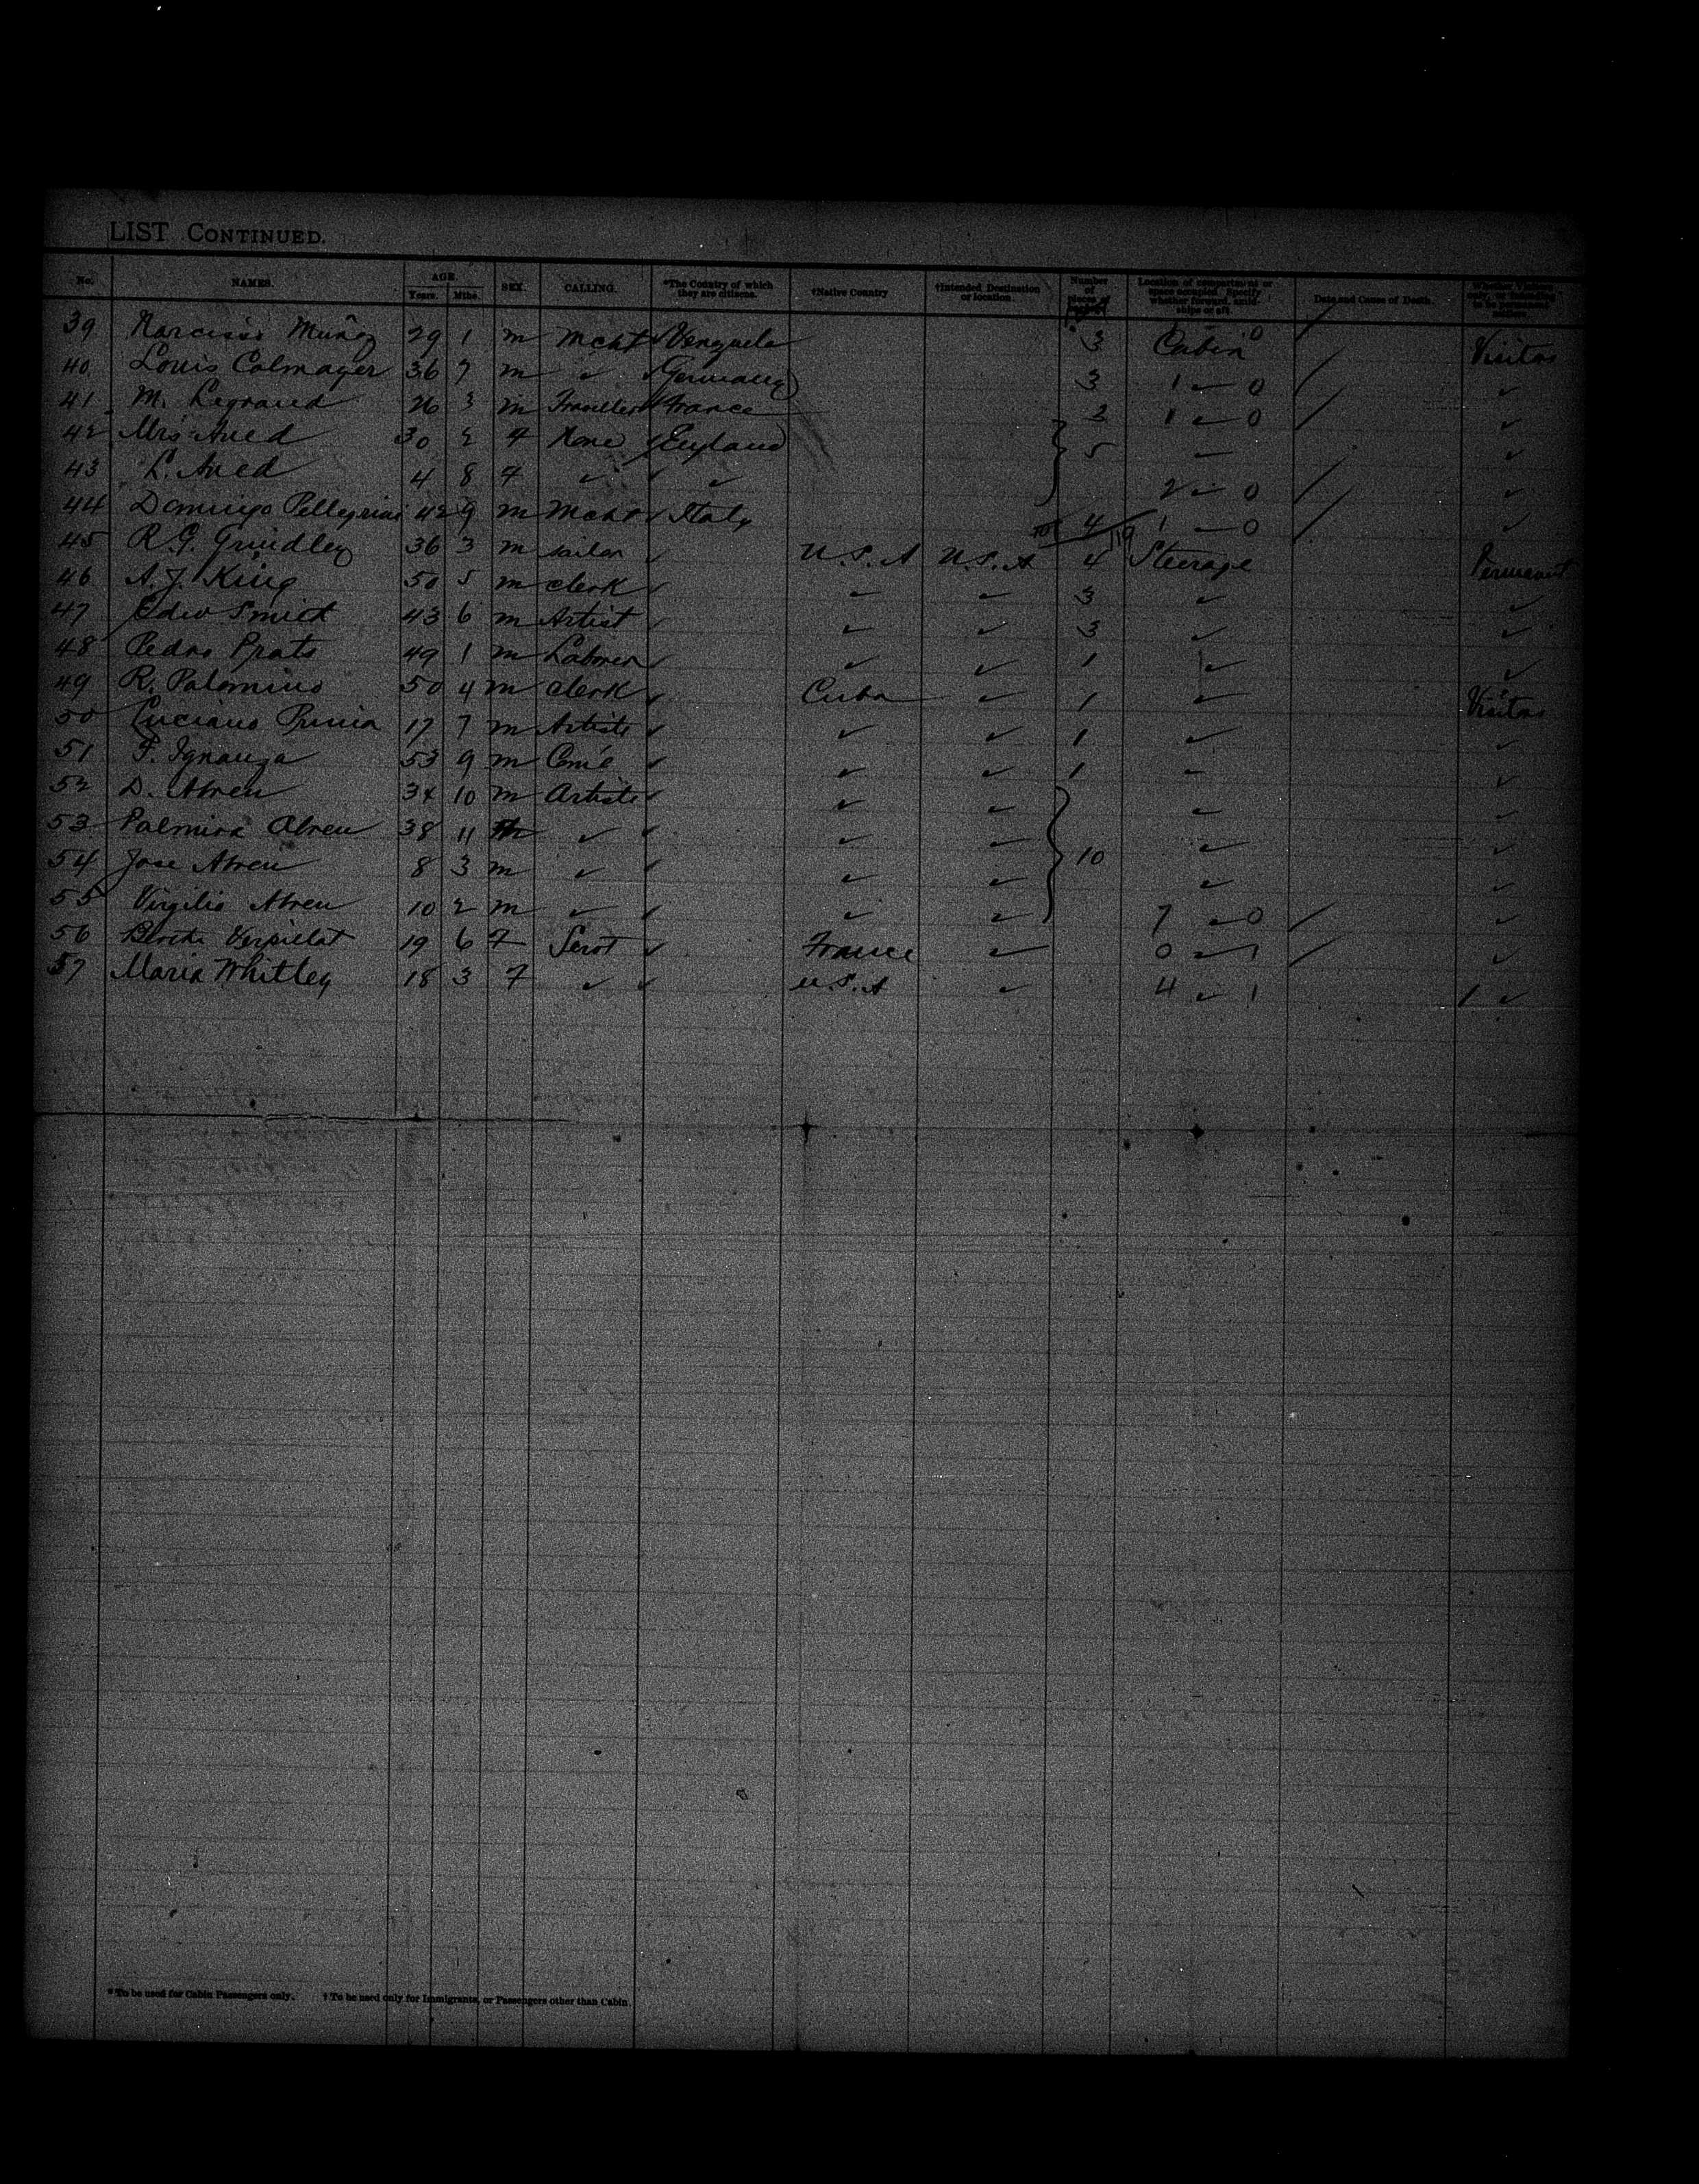 LIST CONTINUED.
No. NAMES. AGE. Years. Mths. SEX. CALLING. *The Country of which they are citizens. †Native Country †Intended Destination or location. Number of pieces of Location of compartment or space occupied. Date and Cause of Death.
39 Narcisso Muñoz 29 1 m Mcht ✓ Venzuela 3 Cabin 0 / Visitor
40 Louis Colmayer 36 7 m ✓ ✓ Germany 3 1 ✓ 0 / ✓
41 M. Legrand 26 3 m ✓ France 2 1 ✓ 0 / ✓
42 Mrs Aued 30 2 f None ✓ England 5 ✓
43 L. Aued 4 8 f ✓ ✓ ✓ 2 ✓ 0 / ✓
44 Domingo 42 9 m Mcht ✓ Italy 4 1 0 / ✓
45 R. G. Grindley 36 3 m sailor ✓ U.S.A U.S.A 4 Steerage
46 A. J. King 50 5 m clerk ✓ ✓ ✓ 3 ✓ ✓
47 Edw Smith 43 6 m Artist ✓ ✓ ✓ 3 ✓ ✓
48 Pedro Prats 49 1 m Laborer ✓ ✓ ✓ 1 ✓ ✓
49 R. Palomino 50 4 m clerk ✓ Cuba ✓ 1 ✓ Visitor
50 Luciano 17 7 m Artiste ✓ ✓ ✓ 1 ✓ ✓
51 F. 53 9 m ✓ ✓ ✓ 1 ✓
52 D. Abreu 34 10 m Artiste ✓ ✓ ✓ ✓ ✓
53 Palmira Abreu 38 11 ✓ ✓ ✓ ✓ 10 ✓ ✓
54 Jose Abreu 8 3 m ✓ ✓ ✓ ✓ ✓ ✓
55 Virgilio Abreu 10 2 m ✓ ✓ ✓ ✓ 7 ✓ 0 / ✓
56 19 6 f ✓ France ✓ 0 ✓ 1 / ✓
57 Maria Whitley 18 3 f ✓ ✓ U.S.A ✓ 4 ✓ 1 / ✓
* To be used for Cabin Passengers only. † To be used only for Immigrants, or Passengers other than Cabin.